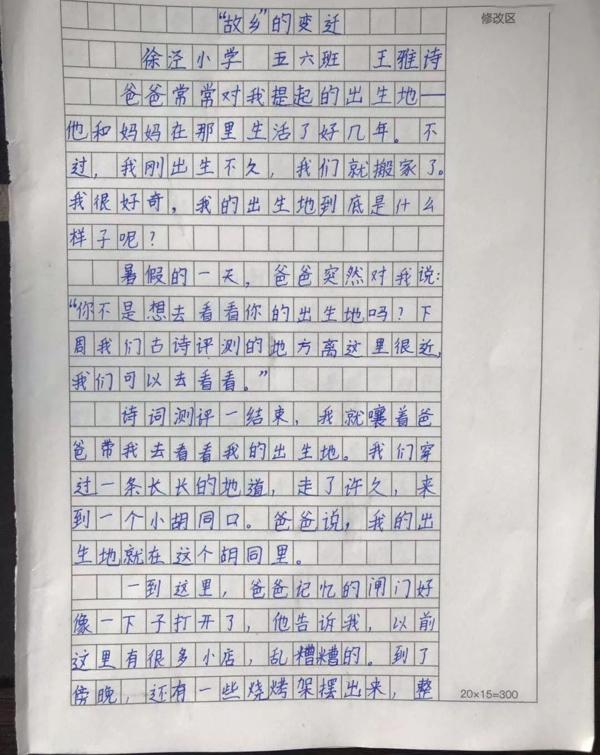 “故乡”的变迁
修改区
徐泾小学 五六班 王雅诗
爸爸常常对我提起的出生地——
他和妈妈在那里生活了好几年。不
过，我刚出生不久，我们就搬家了。
我很好奇，我的出生地到底是什么
样子呢？
暑假的一天，爸爸突然对我说：
“你不是想去看看你的出生地吗？下
周我们古诗评测的地方离这里很近，
我们可以去看看。”
诗词测评一结束，我就嚷着爸
爸带我去看看我的出生地。我们穿
过一条长长的地道，走了许久，来
到一个小胡同口。爸爸说，我的出
生地就在这个胡同里。
一到这里，爸爸记忆的闸门好
像一下子打开了，他告诉我，以前
这里有很多小店，乱糟糟的。到了
傍晚，还有一些烧烤架摆出来，整
20×15=300